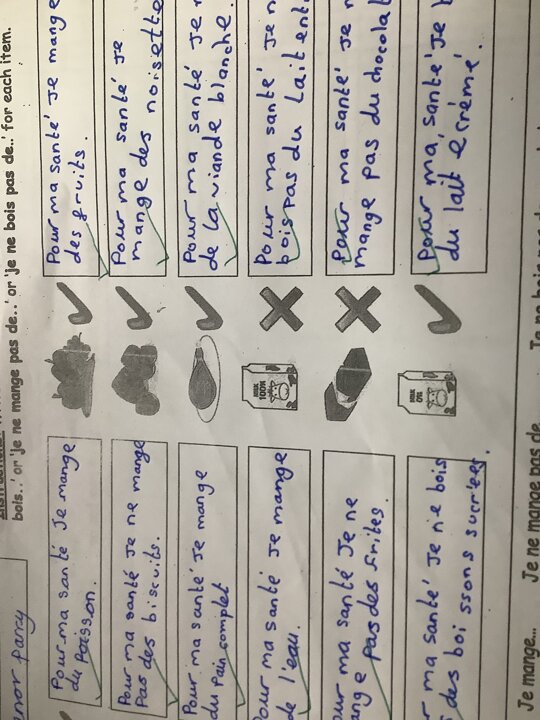 bois..' or 'je ne mange pas de..' or 'je ne bois pas de..' for each item.
Parry
Pour ma santé Je mange
du poisson.
Pour ma santé Je mange
des fruits.
Pour ma santé Je ne mange
Pas des biscuits.
Pour ma santé Je
mange des noisette
Pour ma santé Je mange
du Pain complet
Pour ma santé Je
de la viande blanche.
Pour ma santé Je mange
de l'eau.
MILK
100%
Pour ma santé Je
bois pas du lait ent
ma santé Je ne
pas des frites.
Pour ma santé Je
mange pas du chocola
ma santé Je ne bois
des boissons sucrées.
MILK
0%
Pour ma santé Je
du lait écrémé.
Je mange... Je ne mange pas de